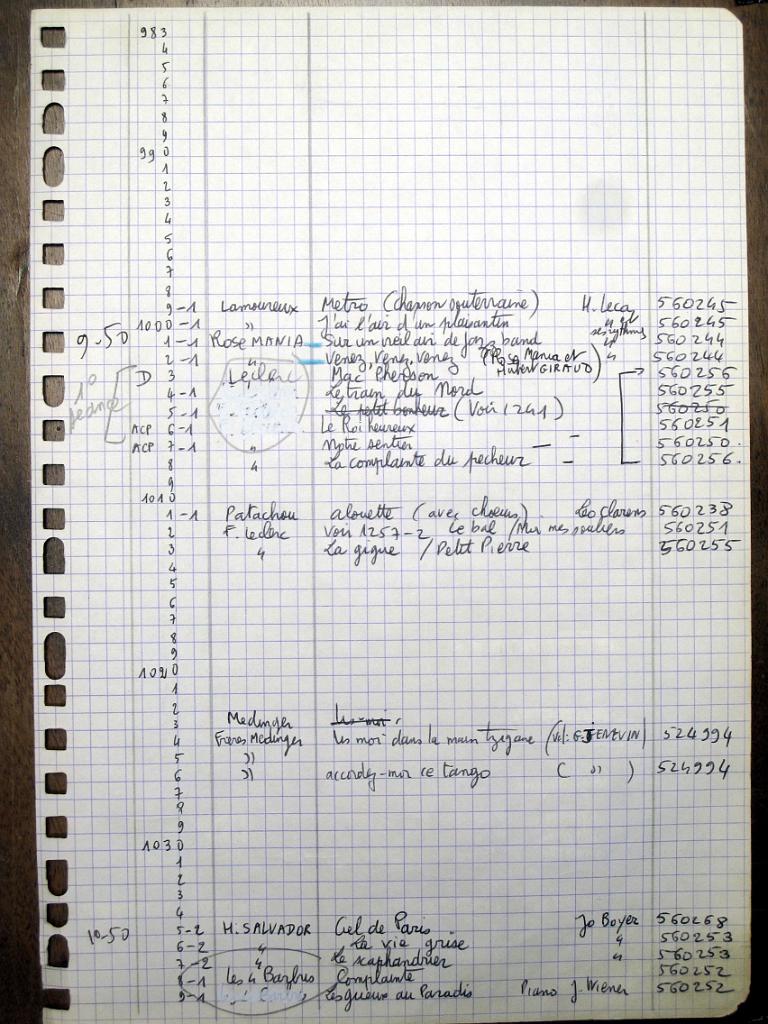 983
4
5
6
7
8
9
990
1
2
3
4
5
6
7
8
9-1 Lamoureux Metro (Chanson souterraine) H. Leca 560245
1000-1 " J'ai l'air d'un plaisantin " et ses rythmes 560245
9-50 1-1 Rose MANIA Sur un vieil air de jazz band " 560244
2-1 " Venez, venez, venez (Rose Mania et Hubert GIRAUD) " 560244
1° séance D 3 Leclerc Mac Pherson 560256
4-1 Le train du Nord 560255
5-1 Le petit bonheur (Voir 1241) 560250
ACP 6-1 Le Roi heureux 560251
ACP 7-1 " Notre sentier — – 560250.
8 " La complainte du pecheur – 560256.
9
1010
1-1 Patachou alouette (avec choeurs) 560238
2 F. Leclerc Voir 1257-2 Le bal / Moi mes souliers 560251
3 " La gigue / Petit Pierre 560255
4
5
6
7
8
9
1020
1
2
3 Medinger
4 Freres Medinger lis moi dans la main tzigane 524994
5 "
6 " accordez-moi ce tango ( " ) 524994
7
8
9
1030
1
2
3
4
10-50 5-2 H. SALVADOR Ciel de Paris Jo Boyer 560268
6-2 " La vie grise " 560253
7-2 " Le scaphandrier " 560253
8-1 Les 4 Barbus Complainte 560252
9-1 Les gueux au Paradis Piano J. Wiener 560252